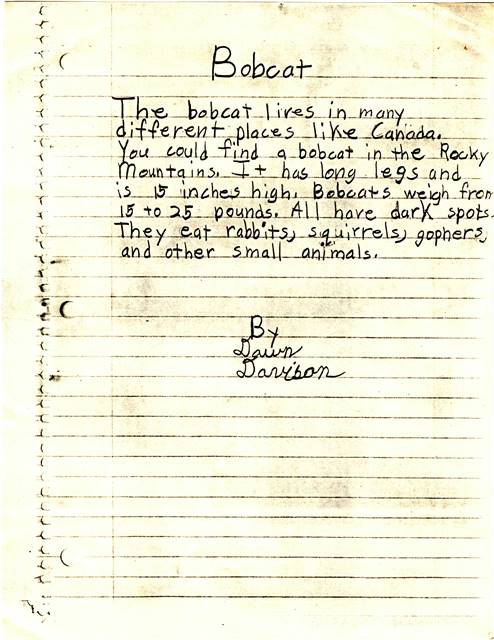 Bobcat
The bobcat lives in many
different places like Canada.
You could find a bobcat in the Rocky
Mountains. It has long legs and
is 15 inches high. Bobcats weigh from
15 to 25 pounds. All have dark spots.
They eat rabbits, squirrels, gophers,
and other small animals.
By
Dawn
Davison